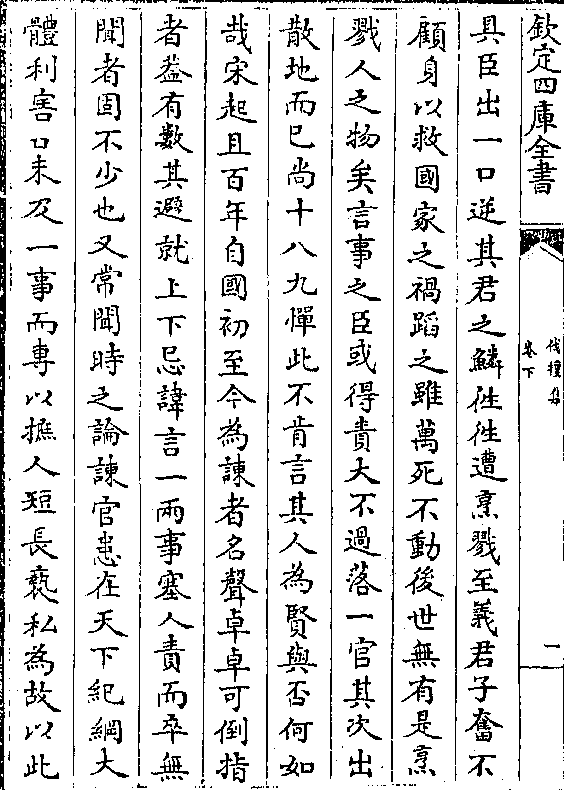 欽定四庫全書
伐檀集
卷下
二
具臣出一口逆其君之鱗徃徃遭烹戮至義君子奮不
顧身以救國家之禍蹈之雖萬死不動後世無有是烹
戮人之物矣言事之臣或得責大不過落一官其次出
散地而已尚十八九憚此不肯言其人為賢與否何如
哉宋起且百年自國初至今為諫者名聲卓卓可倒指
者葢有數其避就上下忌諱言一兩事塞人責而卒無
聞者固不少也又常聞時之論諫官患在天下紀綱大
體利害口未及一事而專以摭人短長褻私為故以此